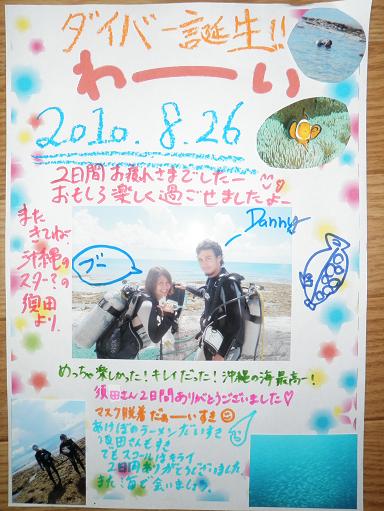 ダイバー誕生!!
わーい
2010.8.26
2日間お疲れさまでしたー
おもしろ楽しく過ごせましたよー
また
きてね
沖縄の
スター?の
須田
より.
ブー
Danny
めっちゃ楽しかった!キレイだった!沖縄の海最高ー!
須田さん2日間ありがとうございました♡
マスク脱着だぁーいすき
あけぼのラーメンだいすき
須田さんもすき
でもスコールはキライ
2日間ありがとうございました
また海で会いましょう。